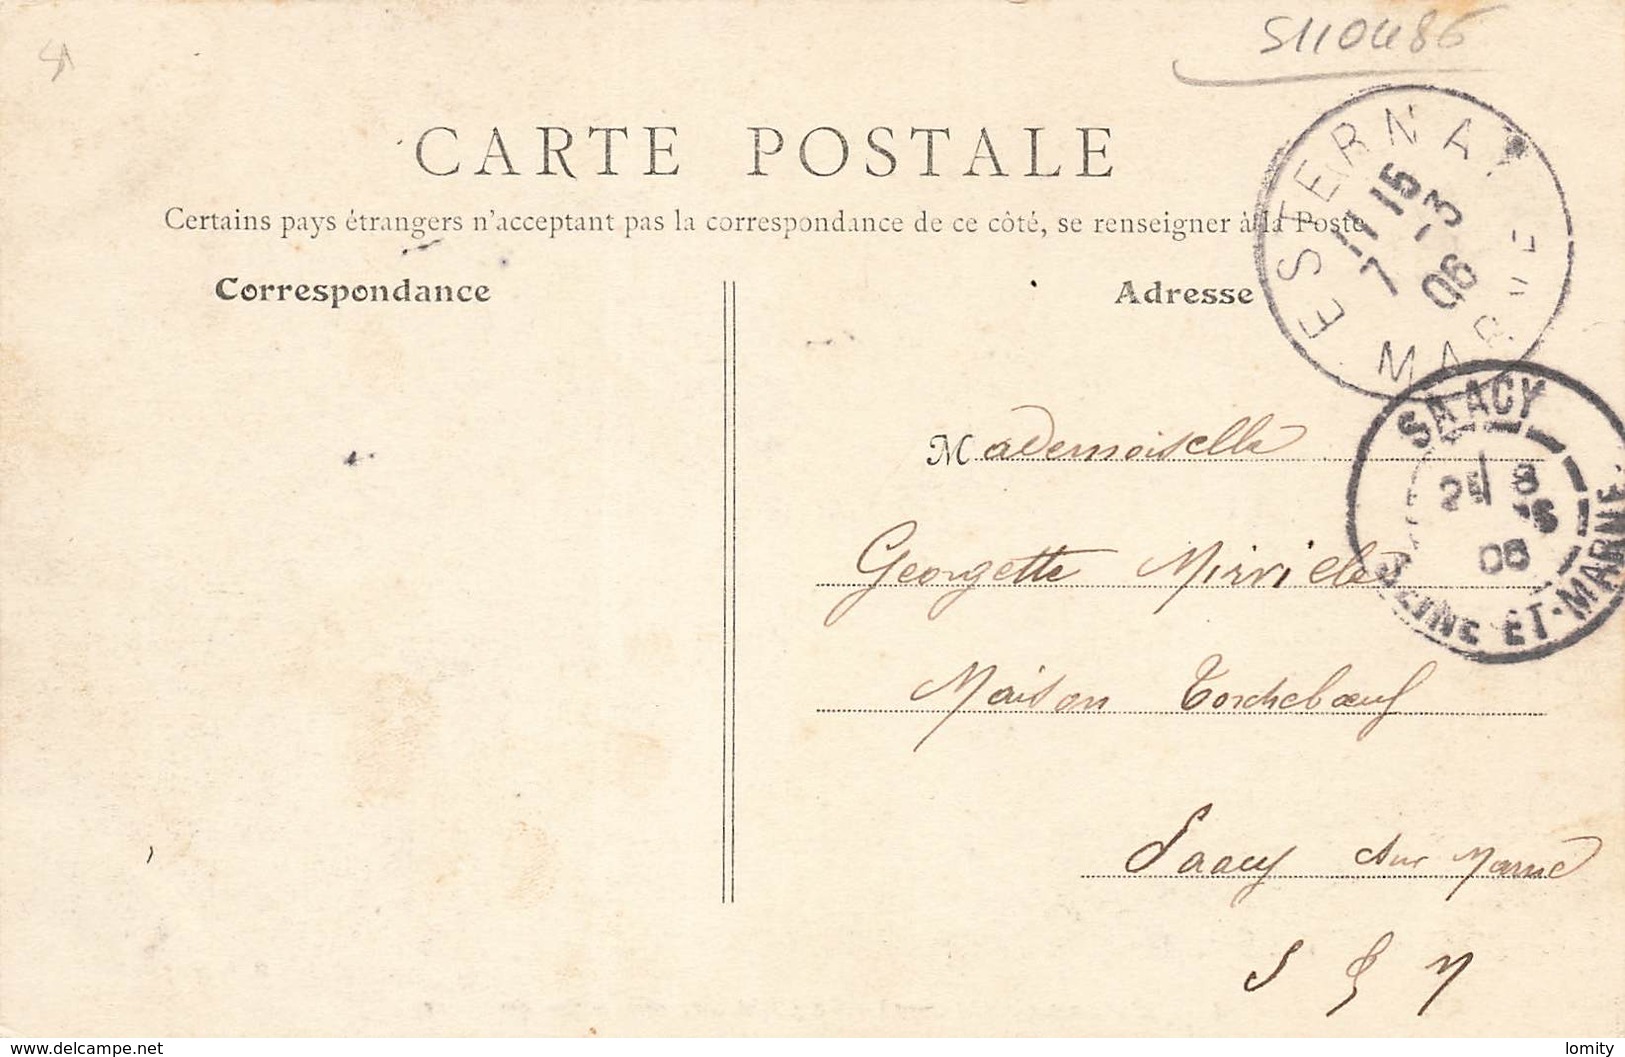 S110486
CARTE POSTALE
Certains pays étrangers n'acceptant pas la correspondance de ce côté, se renseigner à la Poste
Correspondance
Adresse
ESTERNAY
11 15
7 -3
06
MARNE
SAACY
8
06
SEINE-ET-MARNE
Mademoiselle
Georgette
Maison Torchebœuf
Saacy sur Marne
S & M
www.delcampe.net
lomity